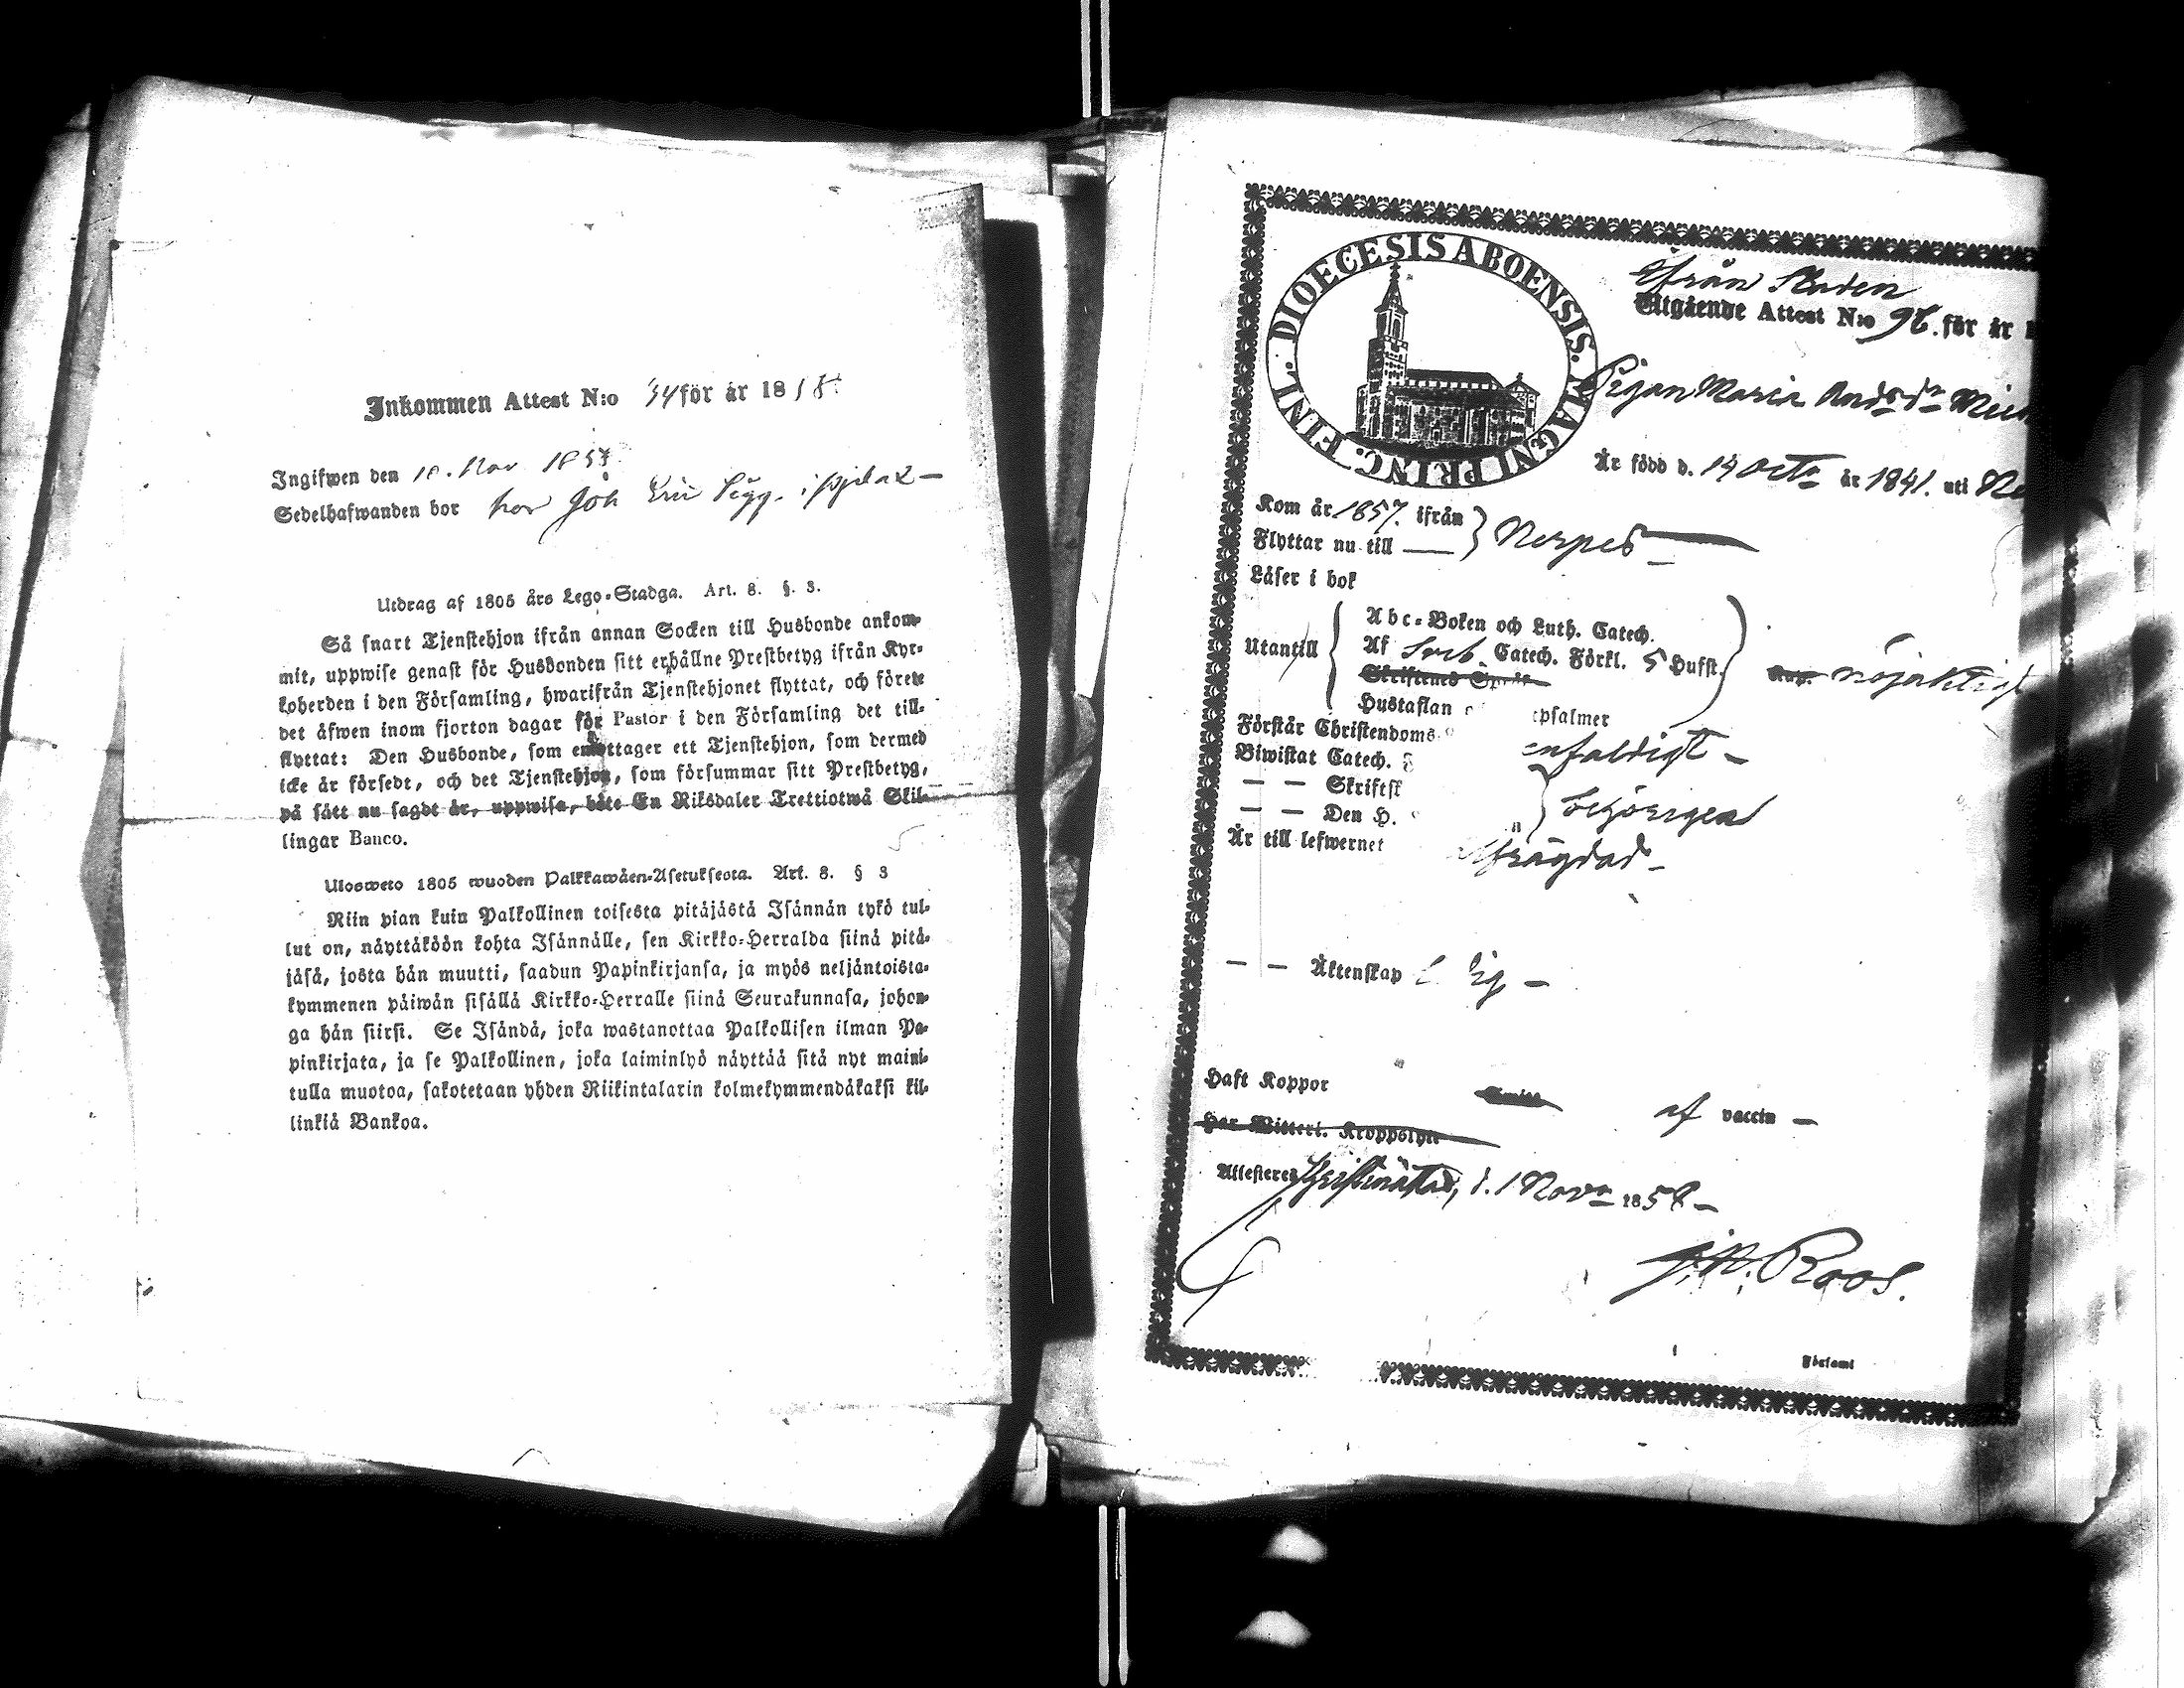 Inkommen Attest N:o 34 för år 1858.
Ingifwen den 10. Nov 1858
Sedelhafwanden bor hos Joh Eric i Pjelax —
Utdrag af 1805 års Lego-Stadga. Art. 8. §. 3.
Så snart Tjenstehjon ifrån annan Socken till Husbonde ankom-
mit, uppwise genast för Husbonden sitt erhållne Prestbetyg ifrån Kyr-
koherden i den Församling, hwarifrån Tjenstehjonet flyttat, och förete
det äfwen inom fjorton dagar för Pastor i den Församling det till-
flyttat: Den Husbonde, som emottager ett Tjenstehjon, som dermed
icke är försedt, och det Tjenstehjon, som försummar sitt Prestbetyg,
på sätt nu sagdt är, uppwisa, böte En Riksdaler Trettiotwå Skil-
lingar Banco.
Ulosweto 1805 wuoden Palkkawäen-Asetuksesta. Art. 8. § 3
Niin pian kuin Palkollinen toisesta pitäjästä Isännän tykö tul-
lut on, näyttäköön kohta Isännälle, sen Kirkko-Herralda siinä pitä-
jäsä, josta hän muutti, saadun Papinkirjansa, ja myös neljäntoista-
kymmenen päiwän sisällä Kirkko-Herralle siinä Seurakunnasa, johon-
ga hän siirsi. Se Isändä, joka wastanottaa Palkollisen ilman Pa-
pinkirjata, ja se Palkollinen, joka laiminlyö näyttää sitä nyt maini-
tulla muotoa, sakotetaan yhden Riikintalarin kolmekymmendäkaksi kil-
linkiä Bankoa.
DIOECESIS ABOENSIS. MAGNI PRINC. FINL.
ifrån Staden
Utgående Attest N:o 96. för år
Pigan Maria Andsdr
Är född d. 14 Octr år 1841. uti Ne
Kom år 1857. ifrån
Flyttar nu till — } Nerpes —
Läser i bok
Utantill
Abc-Boken och Luth. Catech.
Af Sveb. Catech. Förkl. 5 Hufst.
Skriftens Språk
nöjaktigt
Hustaflan psalmer
Förstår Christendoms enfaldigt —
Biwistat Catech.
— — Skriftsk
— — Den H.
behörigen
Är till lefwernet ofrägdad —
— — Äktenskap ledig —
Haft Koppor af vaccin —
Har Witterl. Kroppslyte
Attesteres Christinæstad, d. 1 Novr 1858 —
J. N. Roos.